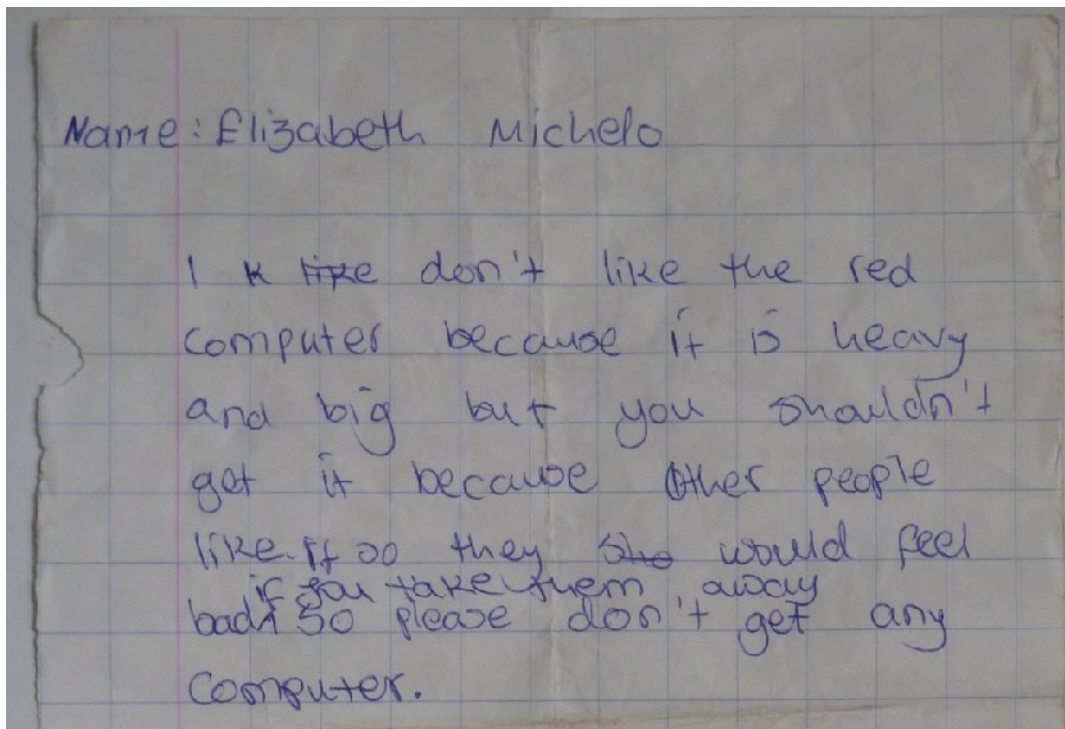 Name: Elizabeth Michelo
I k like don't like the red
computer because it is heavy
and big but you shouldn't
get it because other people
like it so they sho would feel
if you take them away
bad so please don't get any
computer.